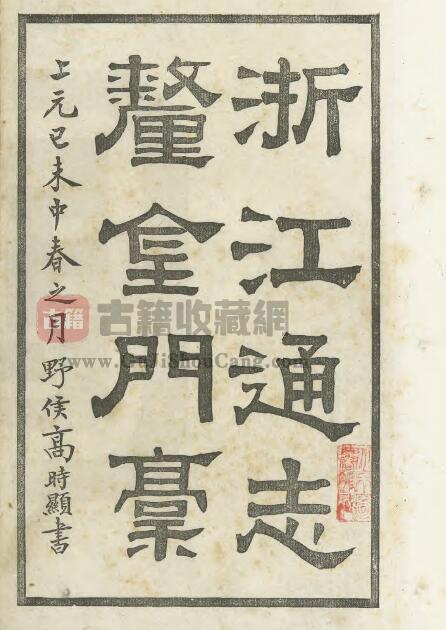 浙江通志
釐金門稾
上元己未中春之月野侯高時顯書
古籍 古籍收藏網
www.GuJiShouCang.com